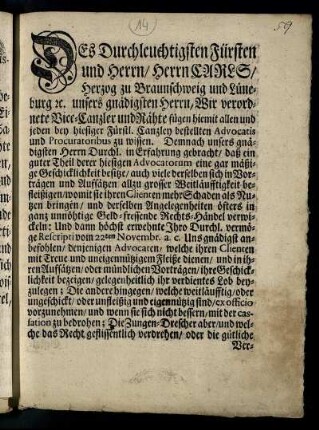 (14)
59
DEs Durchleuchtigsten Fürsten
und Herrn/ Herrn CARLS/
Herzog zu Braunschweig und Lüne-
burg ꝛc. unsers gnädigsten Herrn, Wir verord-
nete Vice-Canzler und Räthe fügen hiemit allen und
jeden bey hiesiger Fürstl. Canzley bestellten Advocatis
und Procuratoribus zu wissen. Demnach unsers gnä-
digsten Herrn Durchl. in Erfahrung gebracht/ daß ein
guter Theil derer hiesigen Advocatorum eine gar mäßi-
ge Geschicklichkeit besitze/ auch viele derselben sich in Vor-
trägen und Aufsätzen allzu grosser Weitläuftigkeit be-
fleißigen/ womit sie ihren Clienten mehr Schaden als Nu-
tzen bringen/ und derselben Angelegenheiten öfters in
ganz unnöhtige Geld-fressende Rechts-Händel verwi-
ckeln: Und dann höchst erwehnte Ihro Durchl. vermö-
ge Rescripti vom 22sten Novembr. a. c. Uns gnädigst an-
befohlen/ denjenigen Advocaten, welche ihren Clienten
mit Treue und uneigennützigem Fleiße dienen/ und in ih-
ren Aufsätzen/ oder mündlichen Vorträgen/ ihre Geschick-
lichkeit bezeigen/ gelegenheitlich ihr verdientes Lob bey-
zulegen; Die andere hingegen/ welche weitläufftig/ oder
ungeschickt/ oder unfleißig und eigennützig sind/ ex officio
vorzunehmen/ und wenn sie sich nicht bessern/ mit der cas-
sation zu bedrohen; Die Zungen-Drescher aber/ und wel-
che das Recht geflissentlich verdrehen/ oder die gütliche
Ver-